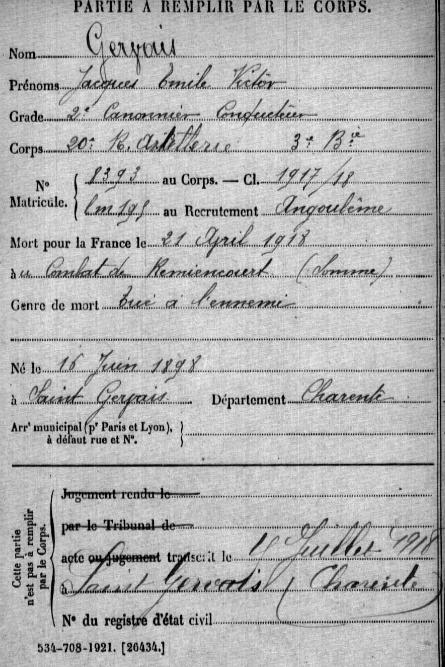 PARTIE À REMPLIR PAR LE CORPS.
Nom Gervais
Prénoms Jacques Emile Victor
Grade 2e Canonnier Conducteur
Corps 20e R. Artillerie 3e Bie
N° Matricule. { 8393 au Corps. — Cl. 1917/18
au Recrutement Angoulême
Mort pour la France le 21 April 1918
à u Combat de Remiencourt (Somme)
Genre de mort tué à l'ennemi
Né le 16 Juin 1898
à Saint Gervais Département Charente
Arrt municipal (pr Paris et Lyon), à défaut rue et N°. }
Cette partie n'est pas à remplir par le Corps.
Jugement rendu le
par le Tribunal de
acte ou jugement transcrit le Juillet 1918
à Saint Gervais (Charente)
N° du registre d'état civil
534-708-1921. [26434.]